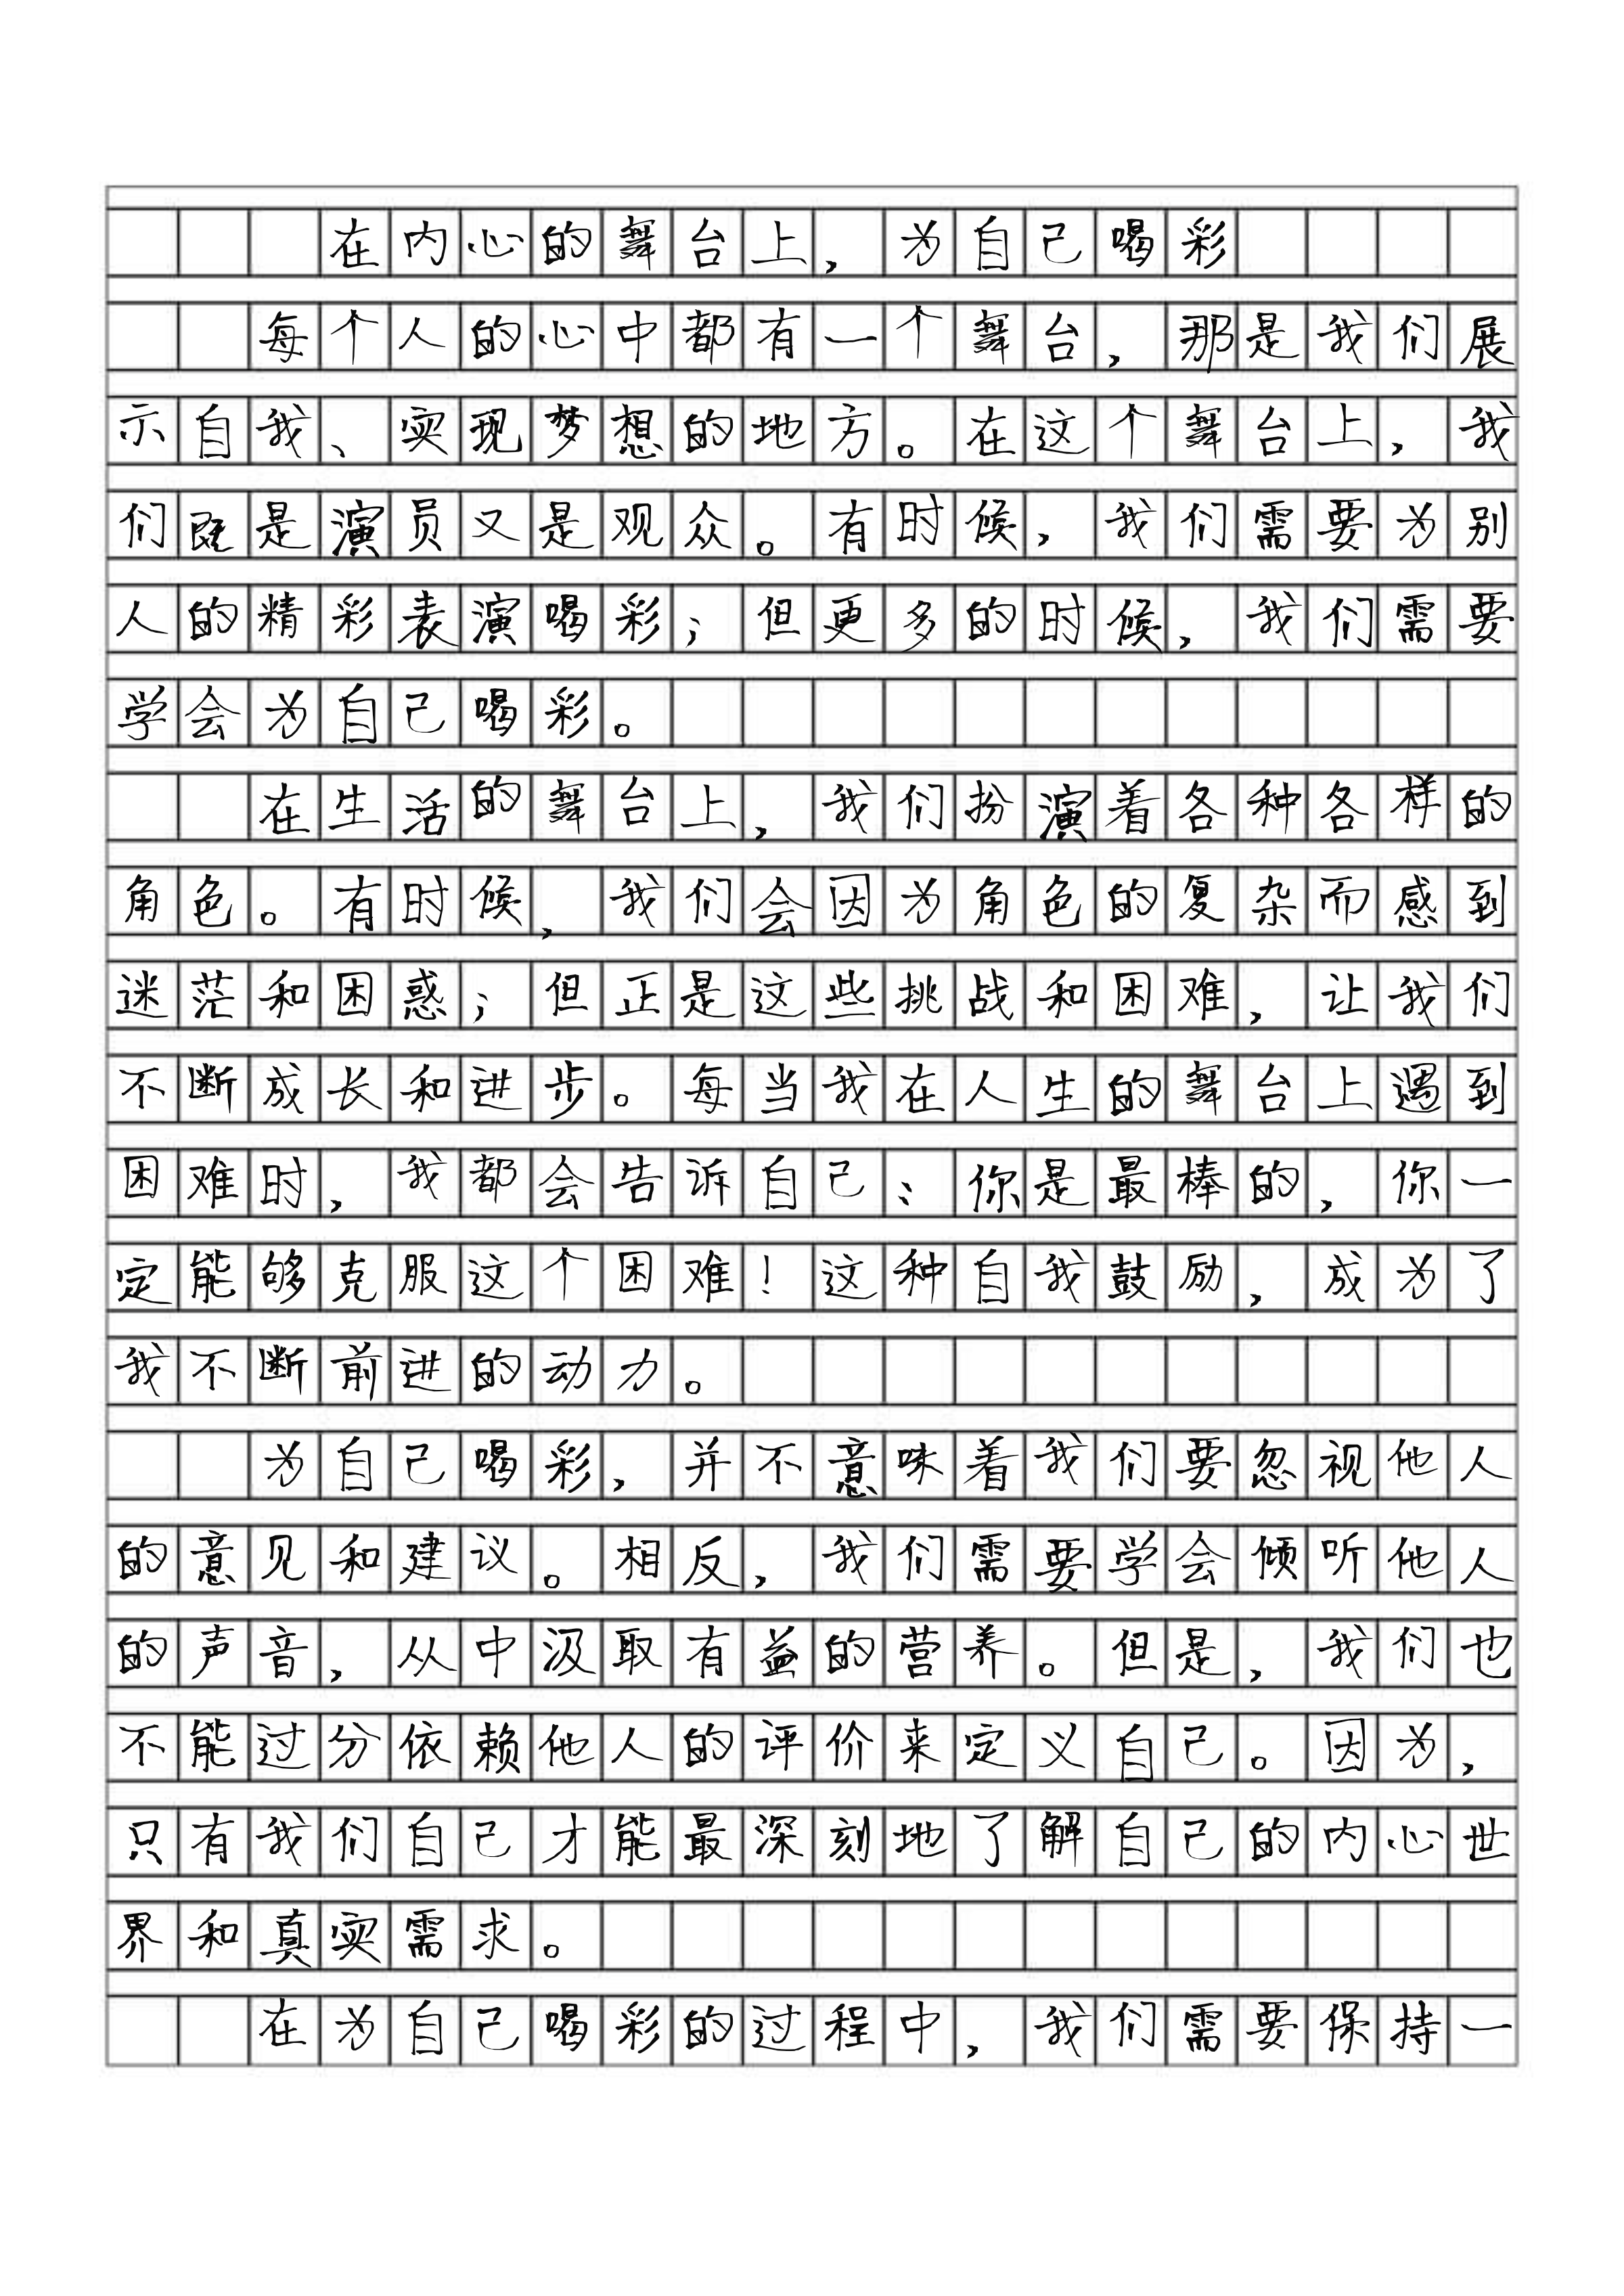 在内心的舞台上，为自己喝彩
每个人的心中都有一个舞台，那是我们展
示自我、实现梦想的地方。在这个舞台上，我
们既是演员又是观众。有时候，我们需要为别
人的精彩表演喝彩；但更多的时候，我们需要
学会为自己喝彩。
在生活的舞台上，我们扮演着各种各样的
角色。有时候，我们会因为角色的复杂而感到
迷茫和困惑；但正是这些挑战和困难，让我们
不断成长和进步。每当我在人生的舞台上遇到
困难时，我都会告诉自己：你是最棒的，你一
定能够克服这个困难！这种自我鼓励，成为了
我不断前进的动力。
为自己喝彩，并不意味着我们要忽视他人
的意见和建议。相反，我们需要学会倾听他人
的声音，从中汲取有益的营养。但是，我们也
不能过分依赖他人的评价来定义自己。因为，
只有我们自己才能最深刻地了解自己的内心世
界和真实需求。
在为自己喝彩的过程中，我们需要保持一